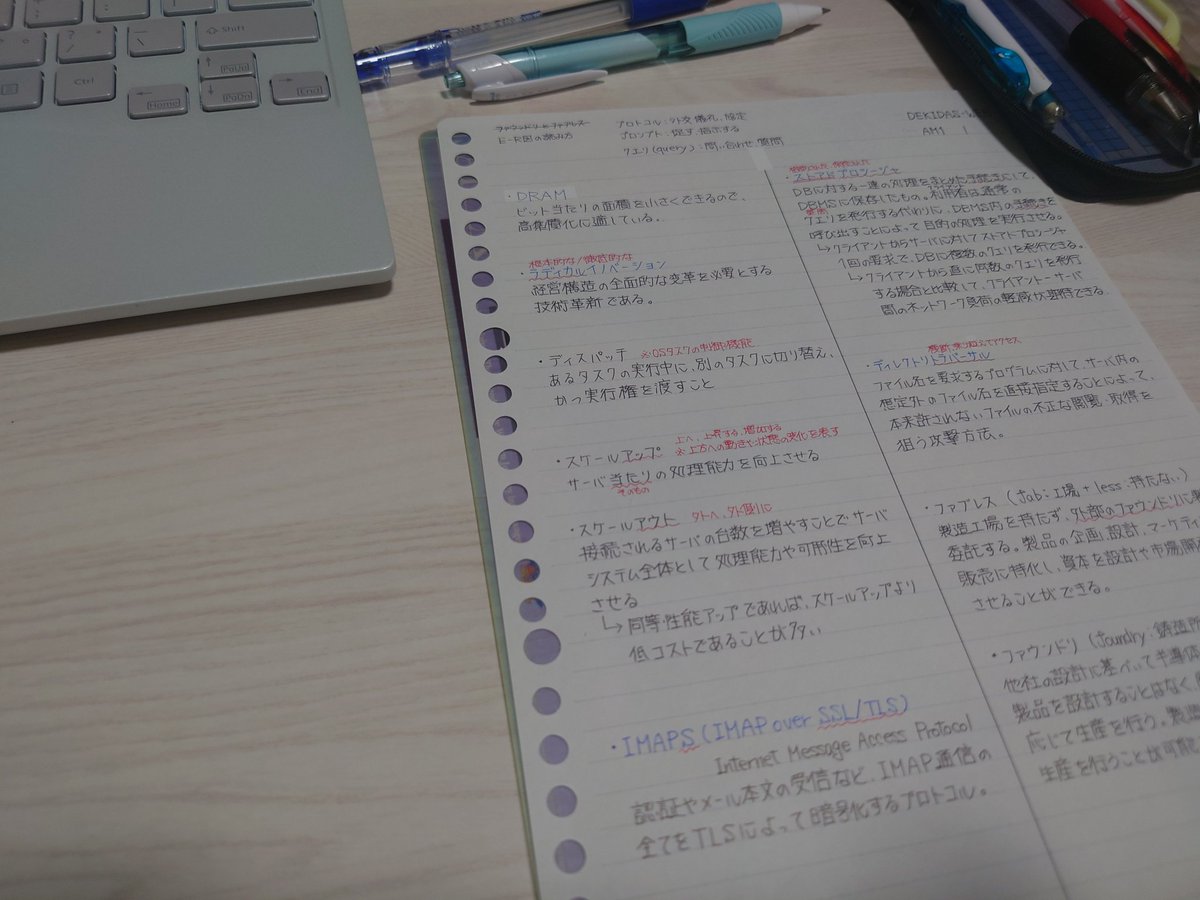 Shift
Ctrl
PgUp
Home
PgDn
End
ファウンドリーとファブレス
E-R図の読み方
プロトコル:外交儀礼、協定
プロンプト:促す、指示する
クエリ(query):問い合わせ、質問
DEKIDAS-W
AM1 1
・DRAM
ビット当たりの面積を小さくできるので、
高集積化に適している。
根本的な/徹底的な
・ラディカルイノベーション
経営構造の全面的な変革を必要とする
技術革新である。
・ディスパッチ ※OSタスクの制御機能
あるタスクの実行中に、別のタスクに切り替え、
かつ実行権を渡すこと
上へ、上昇する、増加する
・スケールアップ ※上方への動きや状態の変化を表す
サーバ当たりの処理能力を向上させる
そのもの
・スケールアウト 外へ、外側に
接続されるサーバの台数を増やすことでサーバ
システム全体として処理能力や可用性を向上
させる
↳同等性能アップであれば、スケールアップより
低コストであることが多い
・IMAPS(IMAP over SSL/TLS)
Internet Message Access Protocol
認証やメール本文の受信など、IMAP通信の
全てをTLSによって暗号化するプロトコル。
・ストアドプロシージャ
DBに対する一連の処理をまとめた手続きにして、
DBMSに保存したもの。利用者は通常の
クエリを発行する代わりに、DBMS内の手続きを
呼び出すことによって目的の処理を実行させる。
↳クライアントからサーバに対してストアドプロシージャ
1回の要求で、DBに複数のクエリを発行できる。
↳クライアントから直に同数のクエリを発行
する場合と比較して、クライアント-サーバ
間のネットワーク負荷の軽減が期待できる。
・ディレクトリトラバーサル
ファイル名を要求するプログラムに対して、サーバ内の
想定外のファイル名を直接指定することによって、
本来許されないファイルの不正な閲覧・取得を
狙う攻撃方法。
・ファブレス(fab:工場+less:持たない)
製造工場を持たず、外部のファウンドリに製
委託する。製品の企画、設計、マーケティ
販売に特化し、資本を設計や市場開
させることができる。
・ファウンドリ(foundry:鋳造所
他社の設計に基づいて半導体
製品を設計することはなく
応じて生産を行う。製造
生産を行うことが可能